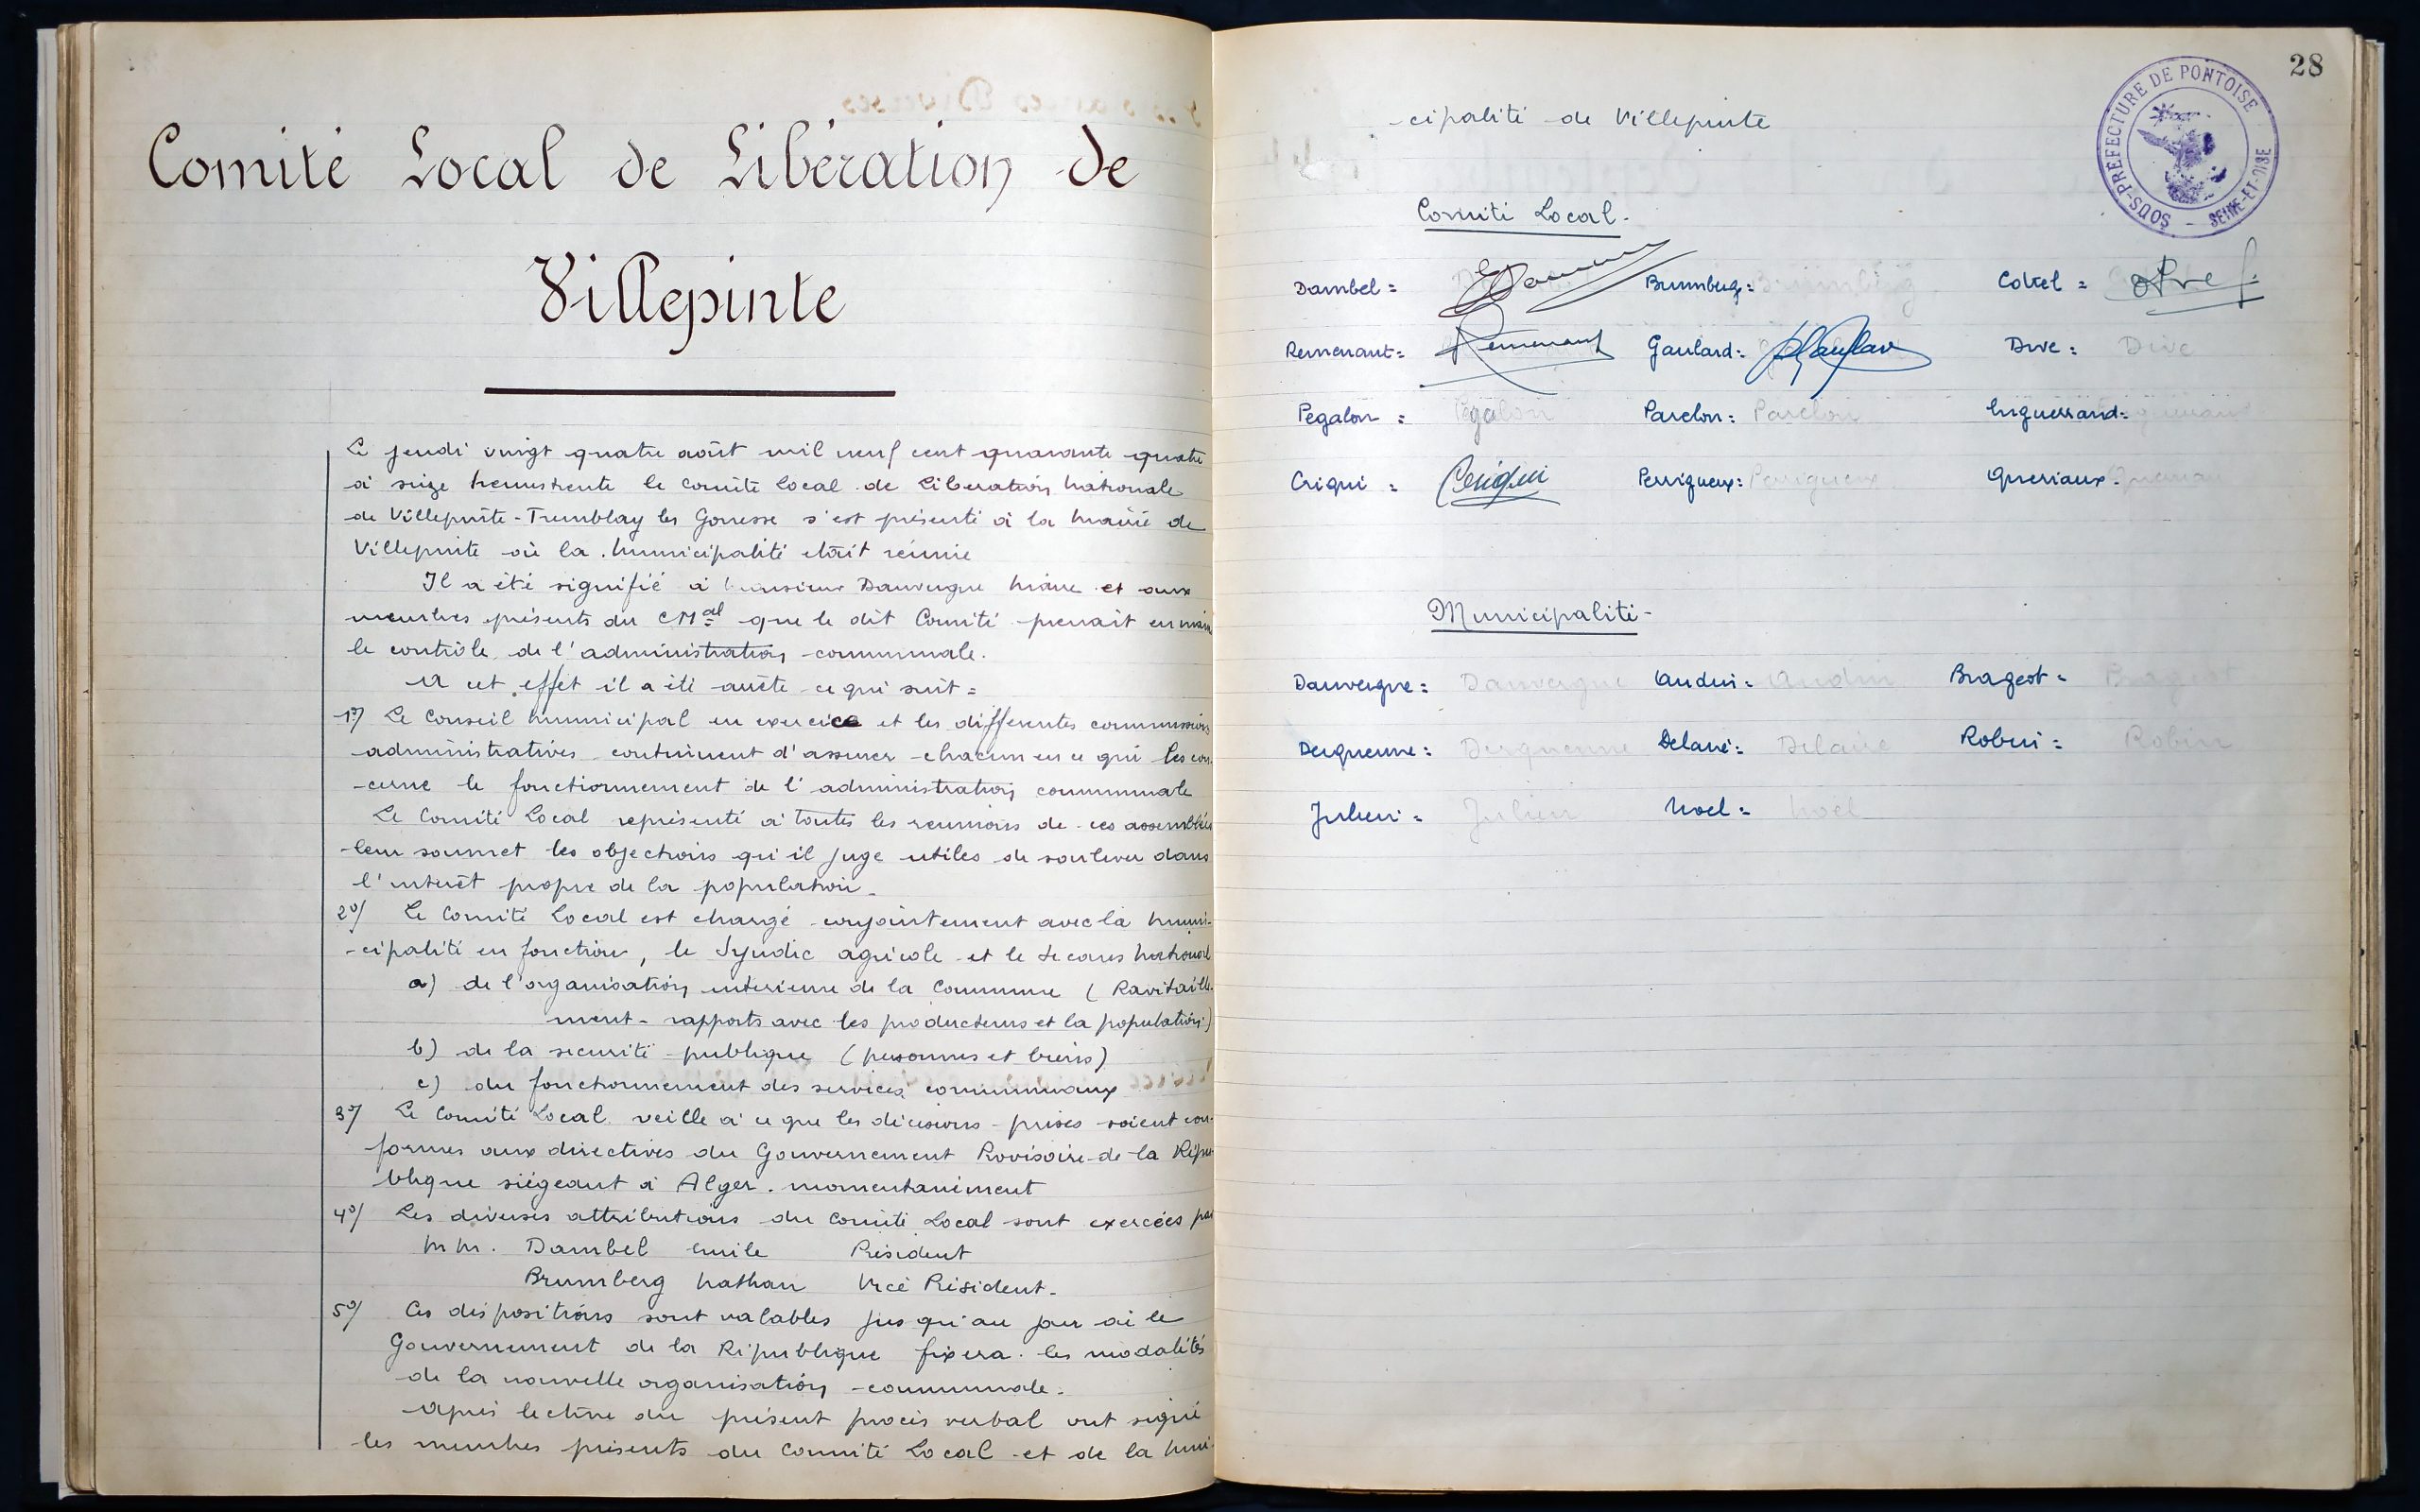 Comité Local de Libération de
Villepinte
Le jeudi vingt quatre août mil neuf cent quarante quatre
à seize heures trente le comité local de Libération Nationale
de Villepinte-Tremblay les Gonesse s'est présenté à la mairie de
Villepinte où la municipalité était réunie
Il a été signifié à Monsieur Dauvergne Maire et aux
membres présents du CMal que le dit Comité prenait en main
le contrôle de l'administration communale.
A cet effet il a été arrêté ce qui suit =
1°/ Le Conseil Municipal en exercice et les différentes commissions
administratives continuent d'assurer chacun en ce qui les con-
-cerne le fonctionnement de l'administration communale
Le Comité Local représenté à toutes les réunions de ces assemblées
leur soumet les objections qu'il juge utiles de soulever dans
l'intérêt propre de la population -
2°/ Le Comité Local est chargé conjointement avec la Muni-
-cipalité en fonction, le Syndic agricole et le Secours National
a) de l'organisation intérieure de la Commune (Ravitaille-
ment - rapports avec les producteurs et la population)
b) de la sécurité publique (personnes et biens)
c) du fonctionnement des services communaux
3°/ Le Comité Local veille à ce que les décisions prises soient con-
formes aux directives du Gouvernement Provisoire de la Répu-
blique siégeant à Alger. momentanément
4°/ Les diverses attributions du Comité Local sont exercées par
MM. Dambel Emile Président
Brumberg Nathan Vice Président -
5°/ Ces dispositions sont valables jusqu'au jour où le
Gouvernement de la République fixera les modalités
de la nouvelle organisation communale.
Après lecture du présent procès verbal ont signé
les membres présents du Comité Local et de la Muni-
28
SOUS-PREFECTURE DE PONTOISE
SEINE-ET-OISE
-cipalité de Villepinte
Comité Local -
Dambel = Brumberg = Cotrel =
Remenant = Remenant Gaulard = Dive = Dive
Pégalon = Pégalon Parelon = Parelon Enguerrand =
Criqui = Criqui Perrigueux = Perrigueux Queriaux =
Municipalité -
Dauvergne = Dauvergne Audin = Audin Brageot = Brageot
Derquenne = Derquenne Delaire = Delaire Robin = Robin
Julien = Julien Noël = Noël